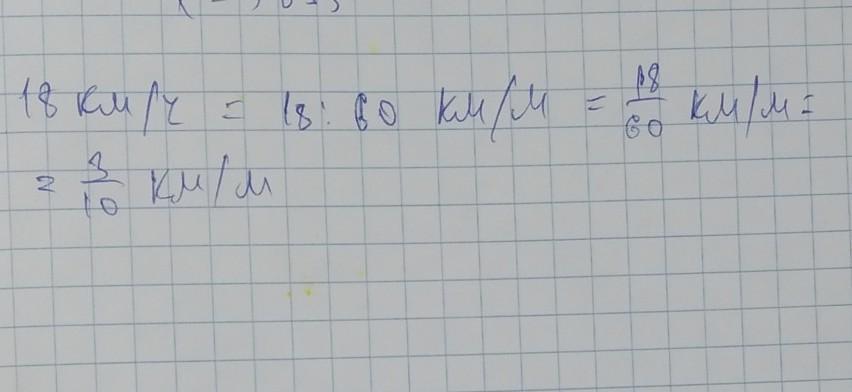 18 км/ч = 18 : 60 км/м = 18/60 км/м =
= 3/10 км/м